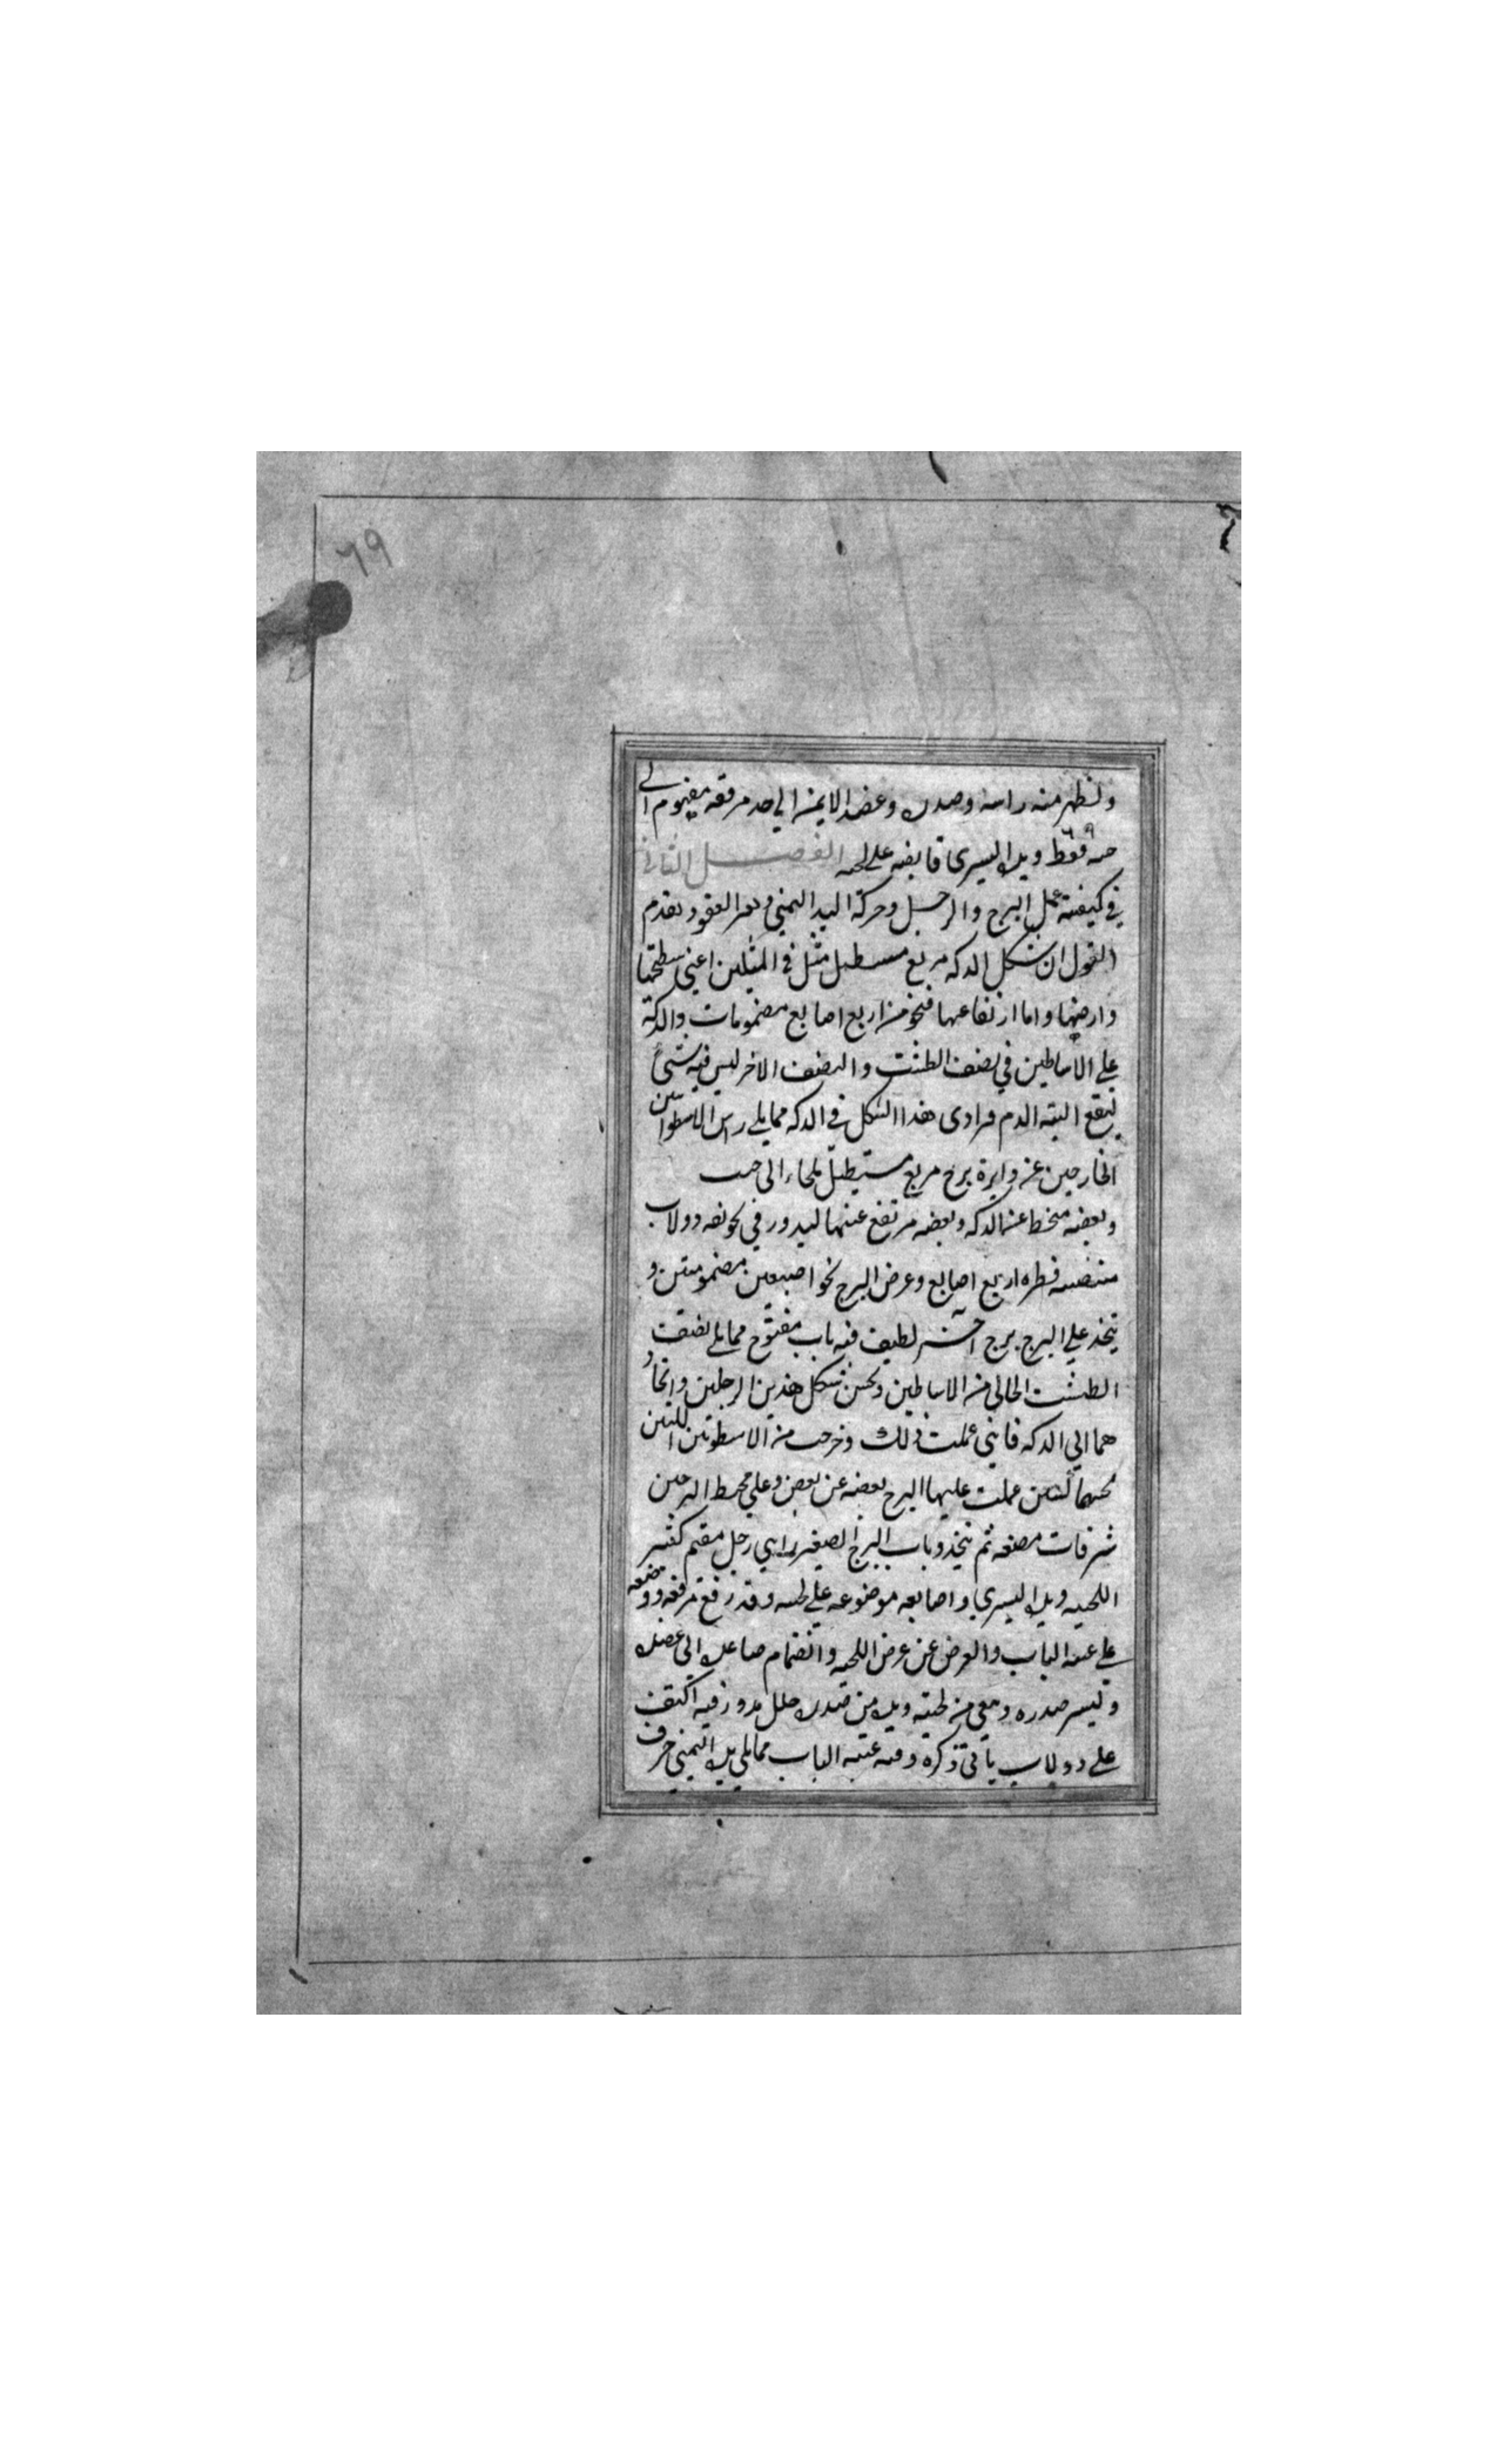 ٦٩
ولنظهر منه راسه وصدره وعضده الايمن الي حد مرفقه مفهوم الي
فقط ويده اليسرى قابضه على لحيه الفصل الثاني
في كيفية عمل البرج والرجل وحركة اليد اليمني وبعر العقود يقدم
القول ان شكل الدكه مربع مستطيل مثل في المثلين اعني سطحها
وارضها واما ارتفاعها فنحو من اربع اصابع مضمومات والدكة
علي الاساطين في نصف الطشت والنصف الاخر ليس فيه شيء
ليقع البته الدم فرادى هذا الشكل في الدكه مما يلي راس الاسطوانتين
الخارجين عن دايرة برج مربع مستطيل
وبعضه منخط عن الدكه وبعضه مرتفع عنها ليدور في تجويفه دولاب
منتصبه قطره اربع اصابع وعرض البرج نحو اصبعين مضمومتين و
يتخذ علي البرج برج آخر لطيف فيه باب مفتوح مما يلي نصف
الطشت الخالي من الاساطين ويحسن شكل هذين الرجلين واتخاد
هما الي الدكه فانني عملت ذلك وخرجت من الاسطوانتين اللتين
عملت عليها البرج بعضه عن بعض وعلي محيط البرجين
شرفات مصنعه ثم يتخذ وباب البرج الصغير راي رجل مقيم كثير
اللحيه ويده اليسري واصابعه موضوعه علي لحيته وقد رفع مرفقه ووضعه
علي عتبه الباب والعرض عن عرض اللحيه وانضمام ساعده الي عضده
وليس صدره ومعي من لحيته ويده من صدره خلل يدور فيه الكتف
علي دولاب ياتي ذكره وفيه عتبه الباب مما يلي يده اليمني حرف